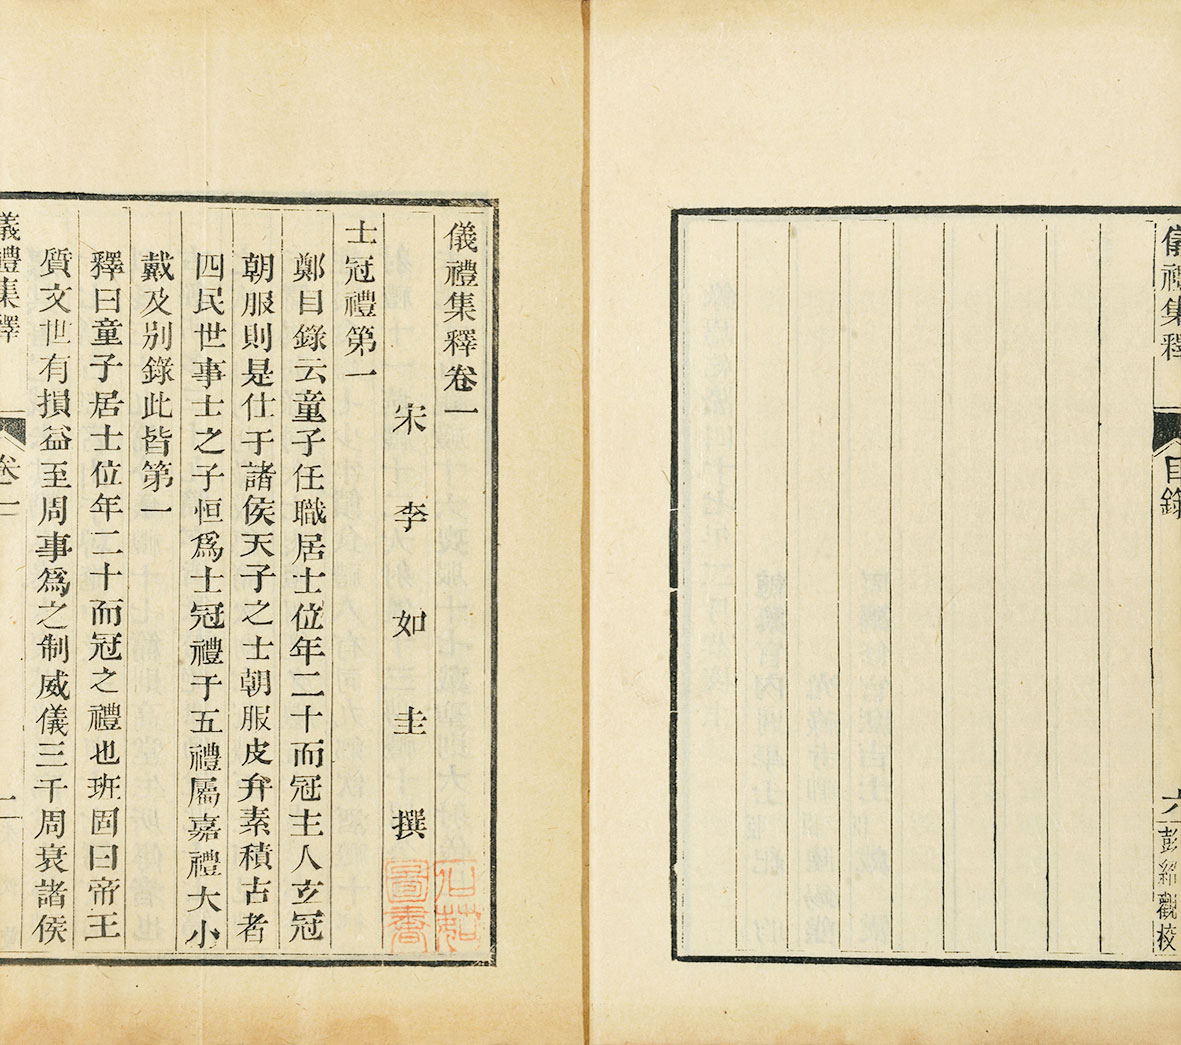 儀禮集釋
目錄
六
彭紹觀校
儀禮集釋卷一
宋李如圭撰
圖書
士冠禮第一
鄭目錄云童子任職居士位年二十而冠主人玄冠
朝服則是仕于諸侯天子之士朝服皮弁素積古者
四民世事士之子恒爲士冠禮于五禮屬嘉禮大小
戴及别錄此皆第一
釋曰童子居士位年二十而冠之禮也班固曰帝王
質文世有損益至周事爲之制威儀三千周衰諸侯
儀禮集釋
卷一
一